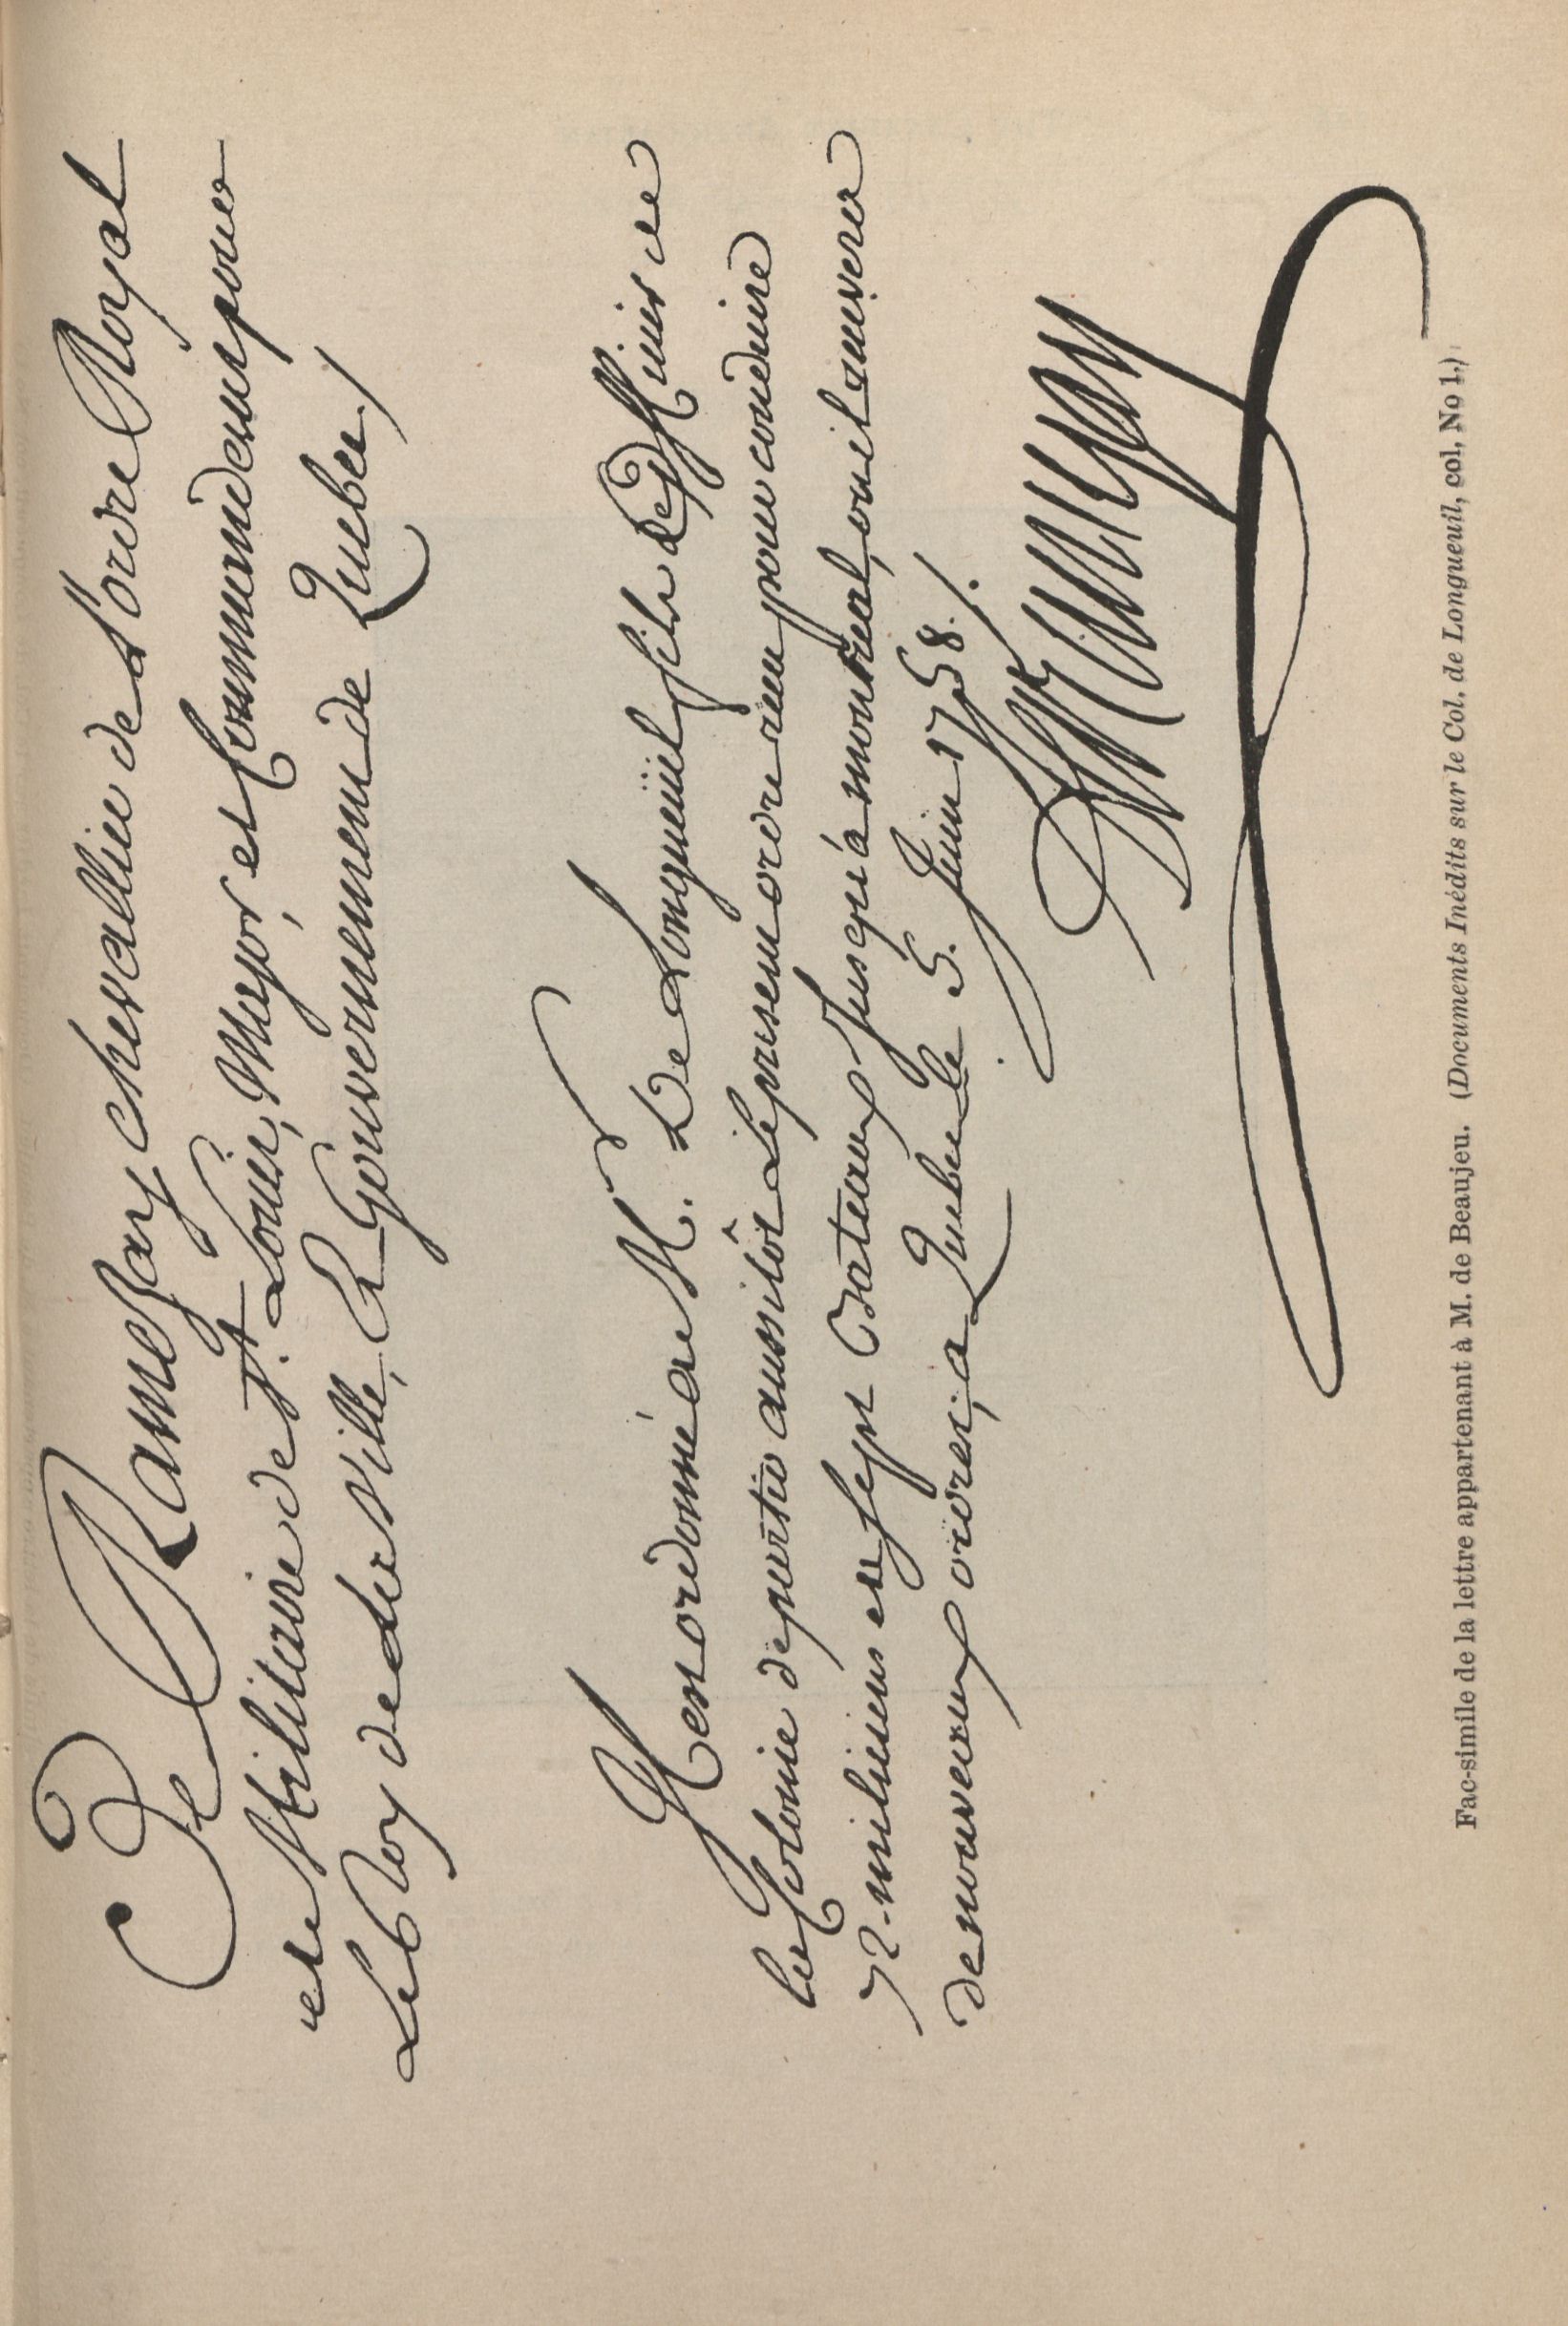 De Ramezay chevallier de L'ordre Royal
et Militaire de St. Louis, Major, et Commendent pour
Le Roy de La Ville, et Gouvernement de Quebec /
Il est ordonné à M. De Longueüil fils officier de
la Colonie de partir aussitôt Le present ordre reçu pour conduire
72. miliciens et sept Bateaux Jusqu'à montreal, ou il trouvera
de nouveaux ordres, a Quebec le 5. Juin 1758. /.
De Ramezay
Fac-simile de la lettre appartenant à M. de Beaujeu. (Documents Inédits sur le Col. de Longueuil, col. No 1.)